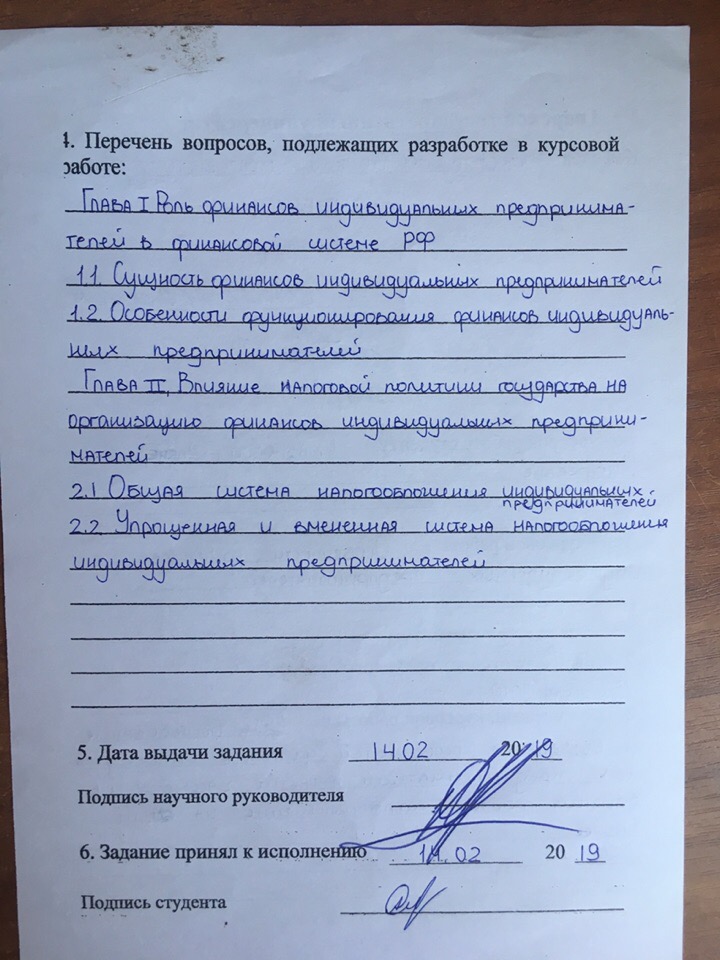 4. Перечень вопросов, подлежащих разработке в курсовой
работе:
Глава I Роль финансов индивидуальных предпринима-
телей в финансовой системе РФ
1.1. Сущность финансов индивидуальных предпринимателей
1.2. Особенности функционирования финансов индивидуаль-
ных предпринимателей
Глава II, Влияние налоговой политики государства на
организацию финансов индивидуальных предприни-
мателей
2.1 Общая система налогообложения индивидуальных
предпринимателей
2.2 Упрощенная и вмененная система налогообложения
индивидуальных предпринимателей
5. Дата выдачи задания 14.02 2019
Подпись научного руководителя
6. Задание принял к исполнению 14.02 2019
Подпись студента